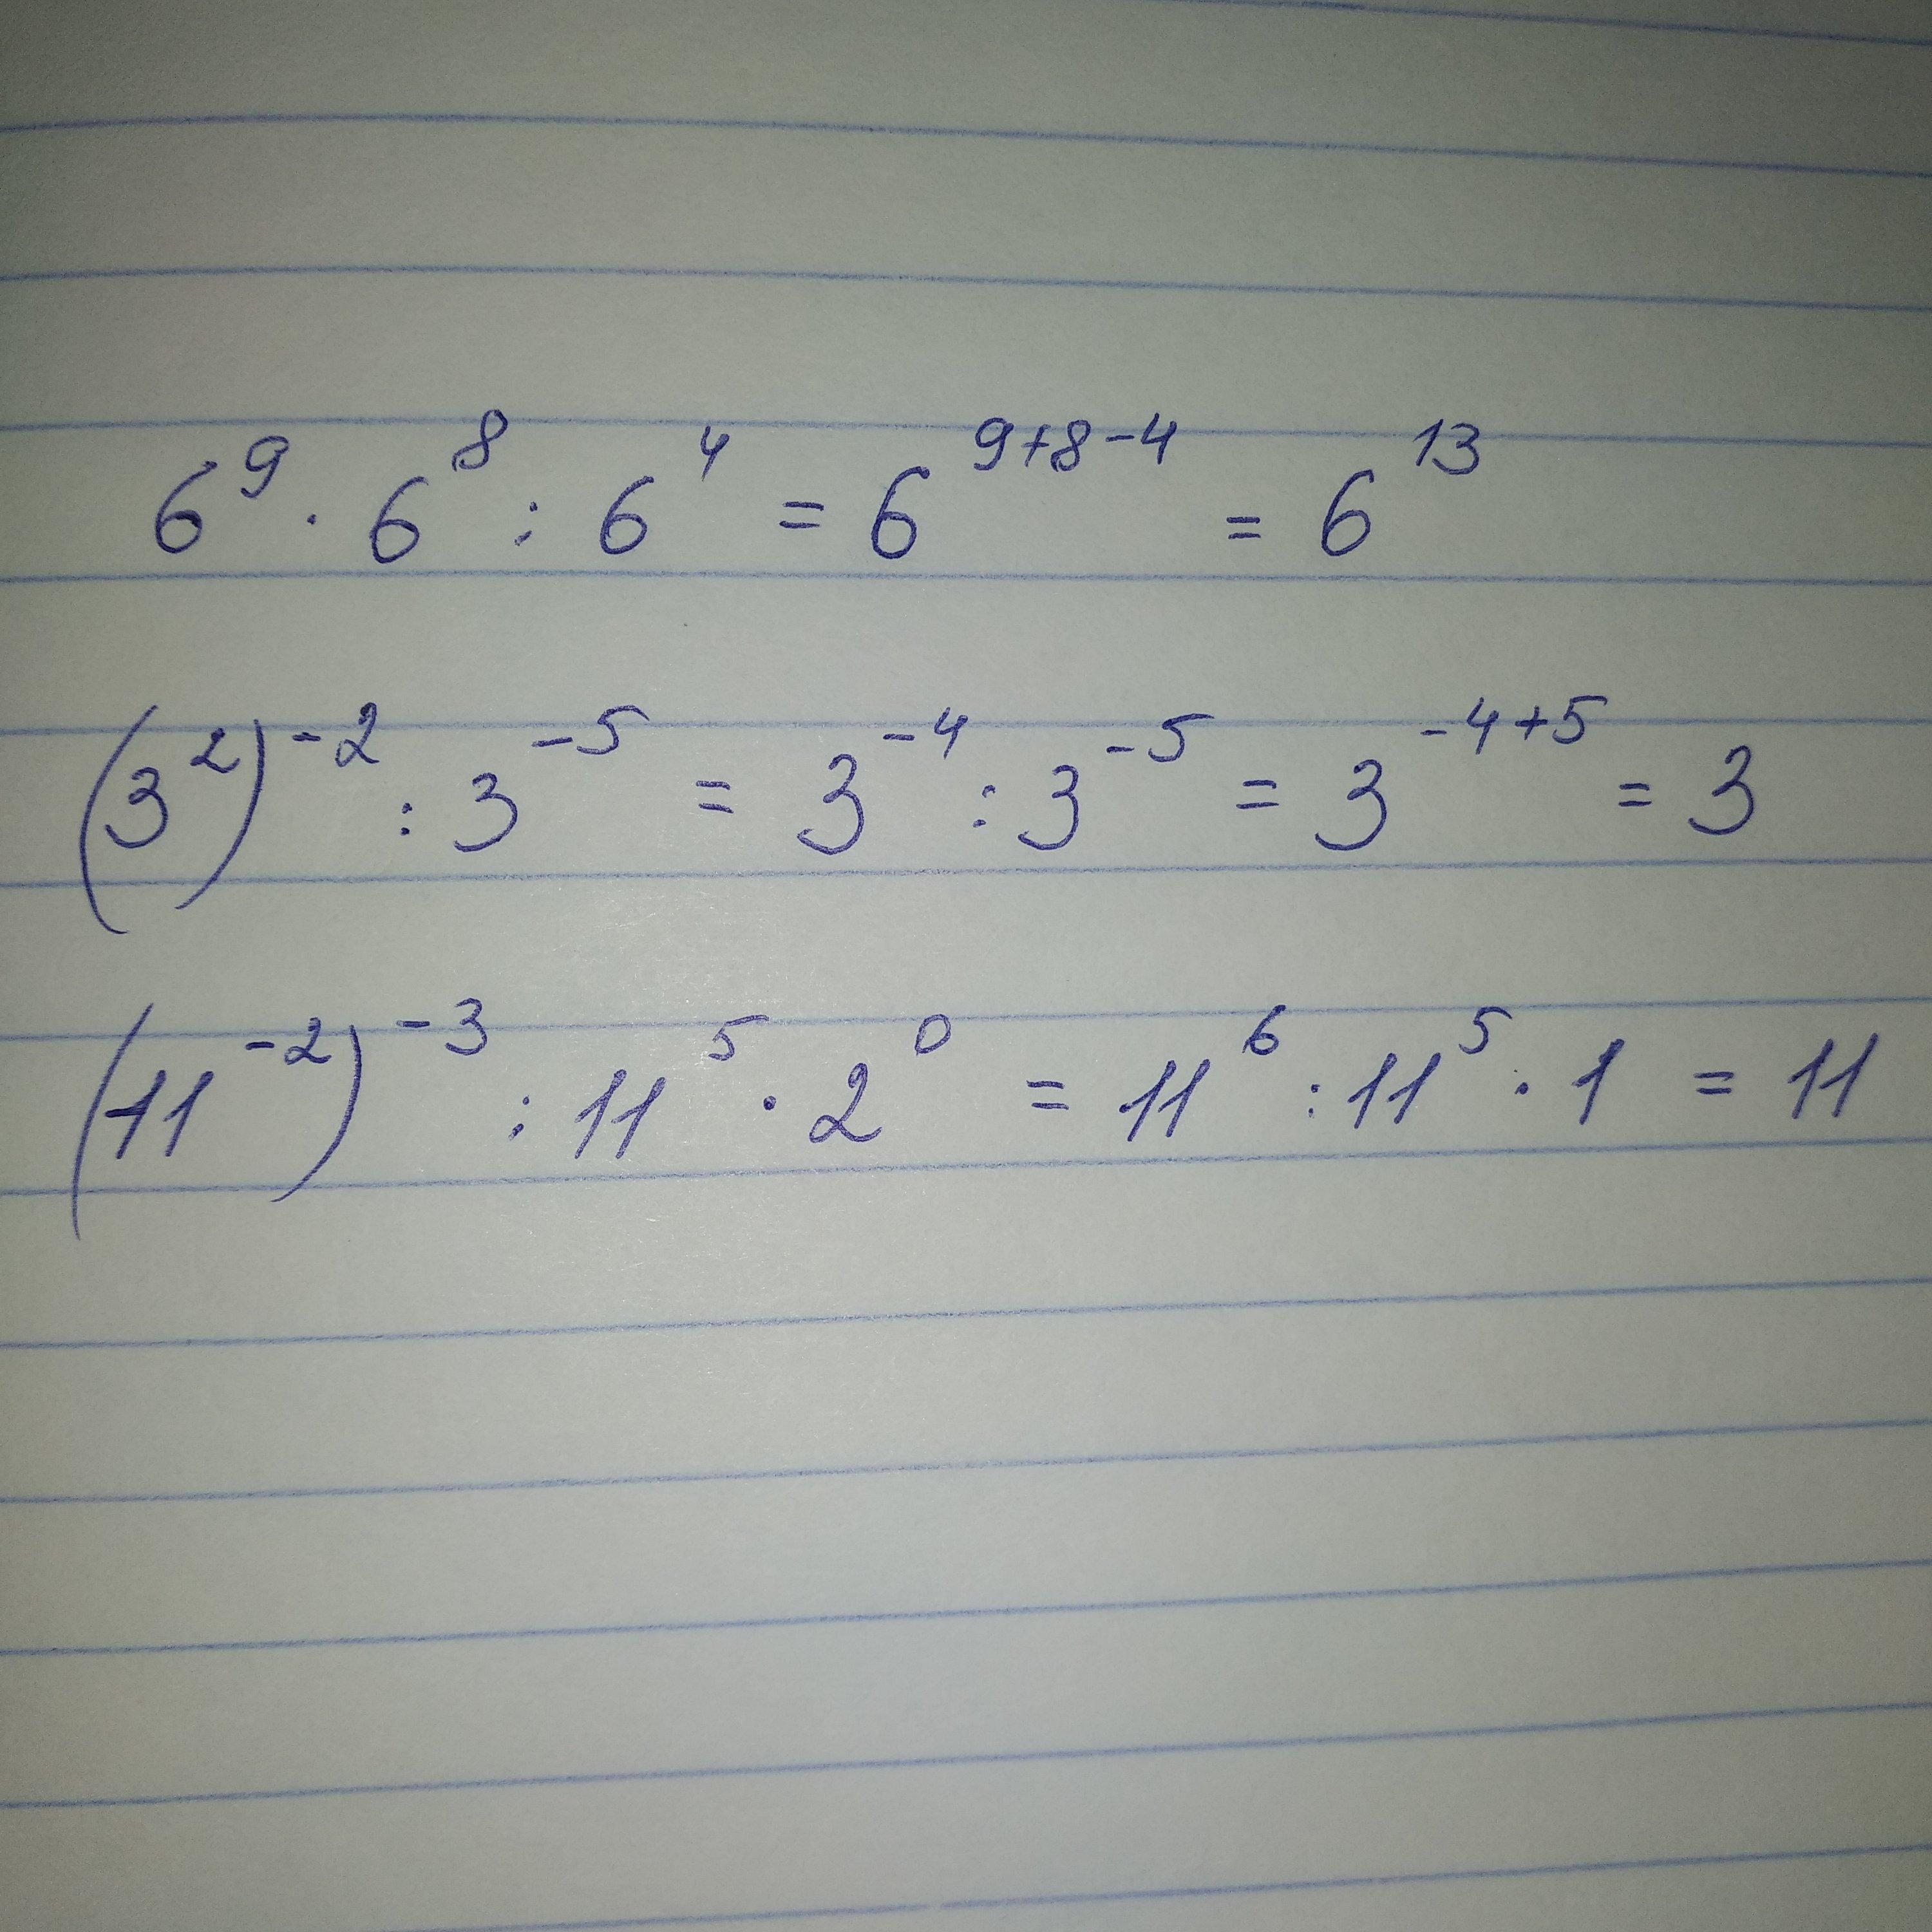 6⁹ · 6⁸ : 6⁴ = 6⁹⁺⁸⁻⁴ = 6¹³
(3²)⁻² : 3⁻⁵ = 3⁻⁴ : 3⁻⁵ = 3⁻⁴⁺⁵ = 3
(11⁻²)⁻³ : 11⁵ · 2⁰ = 11⁶ : 11⁵ · 1 = 11